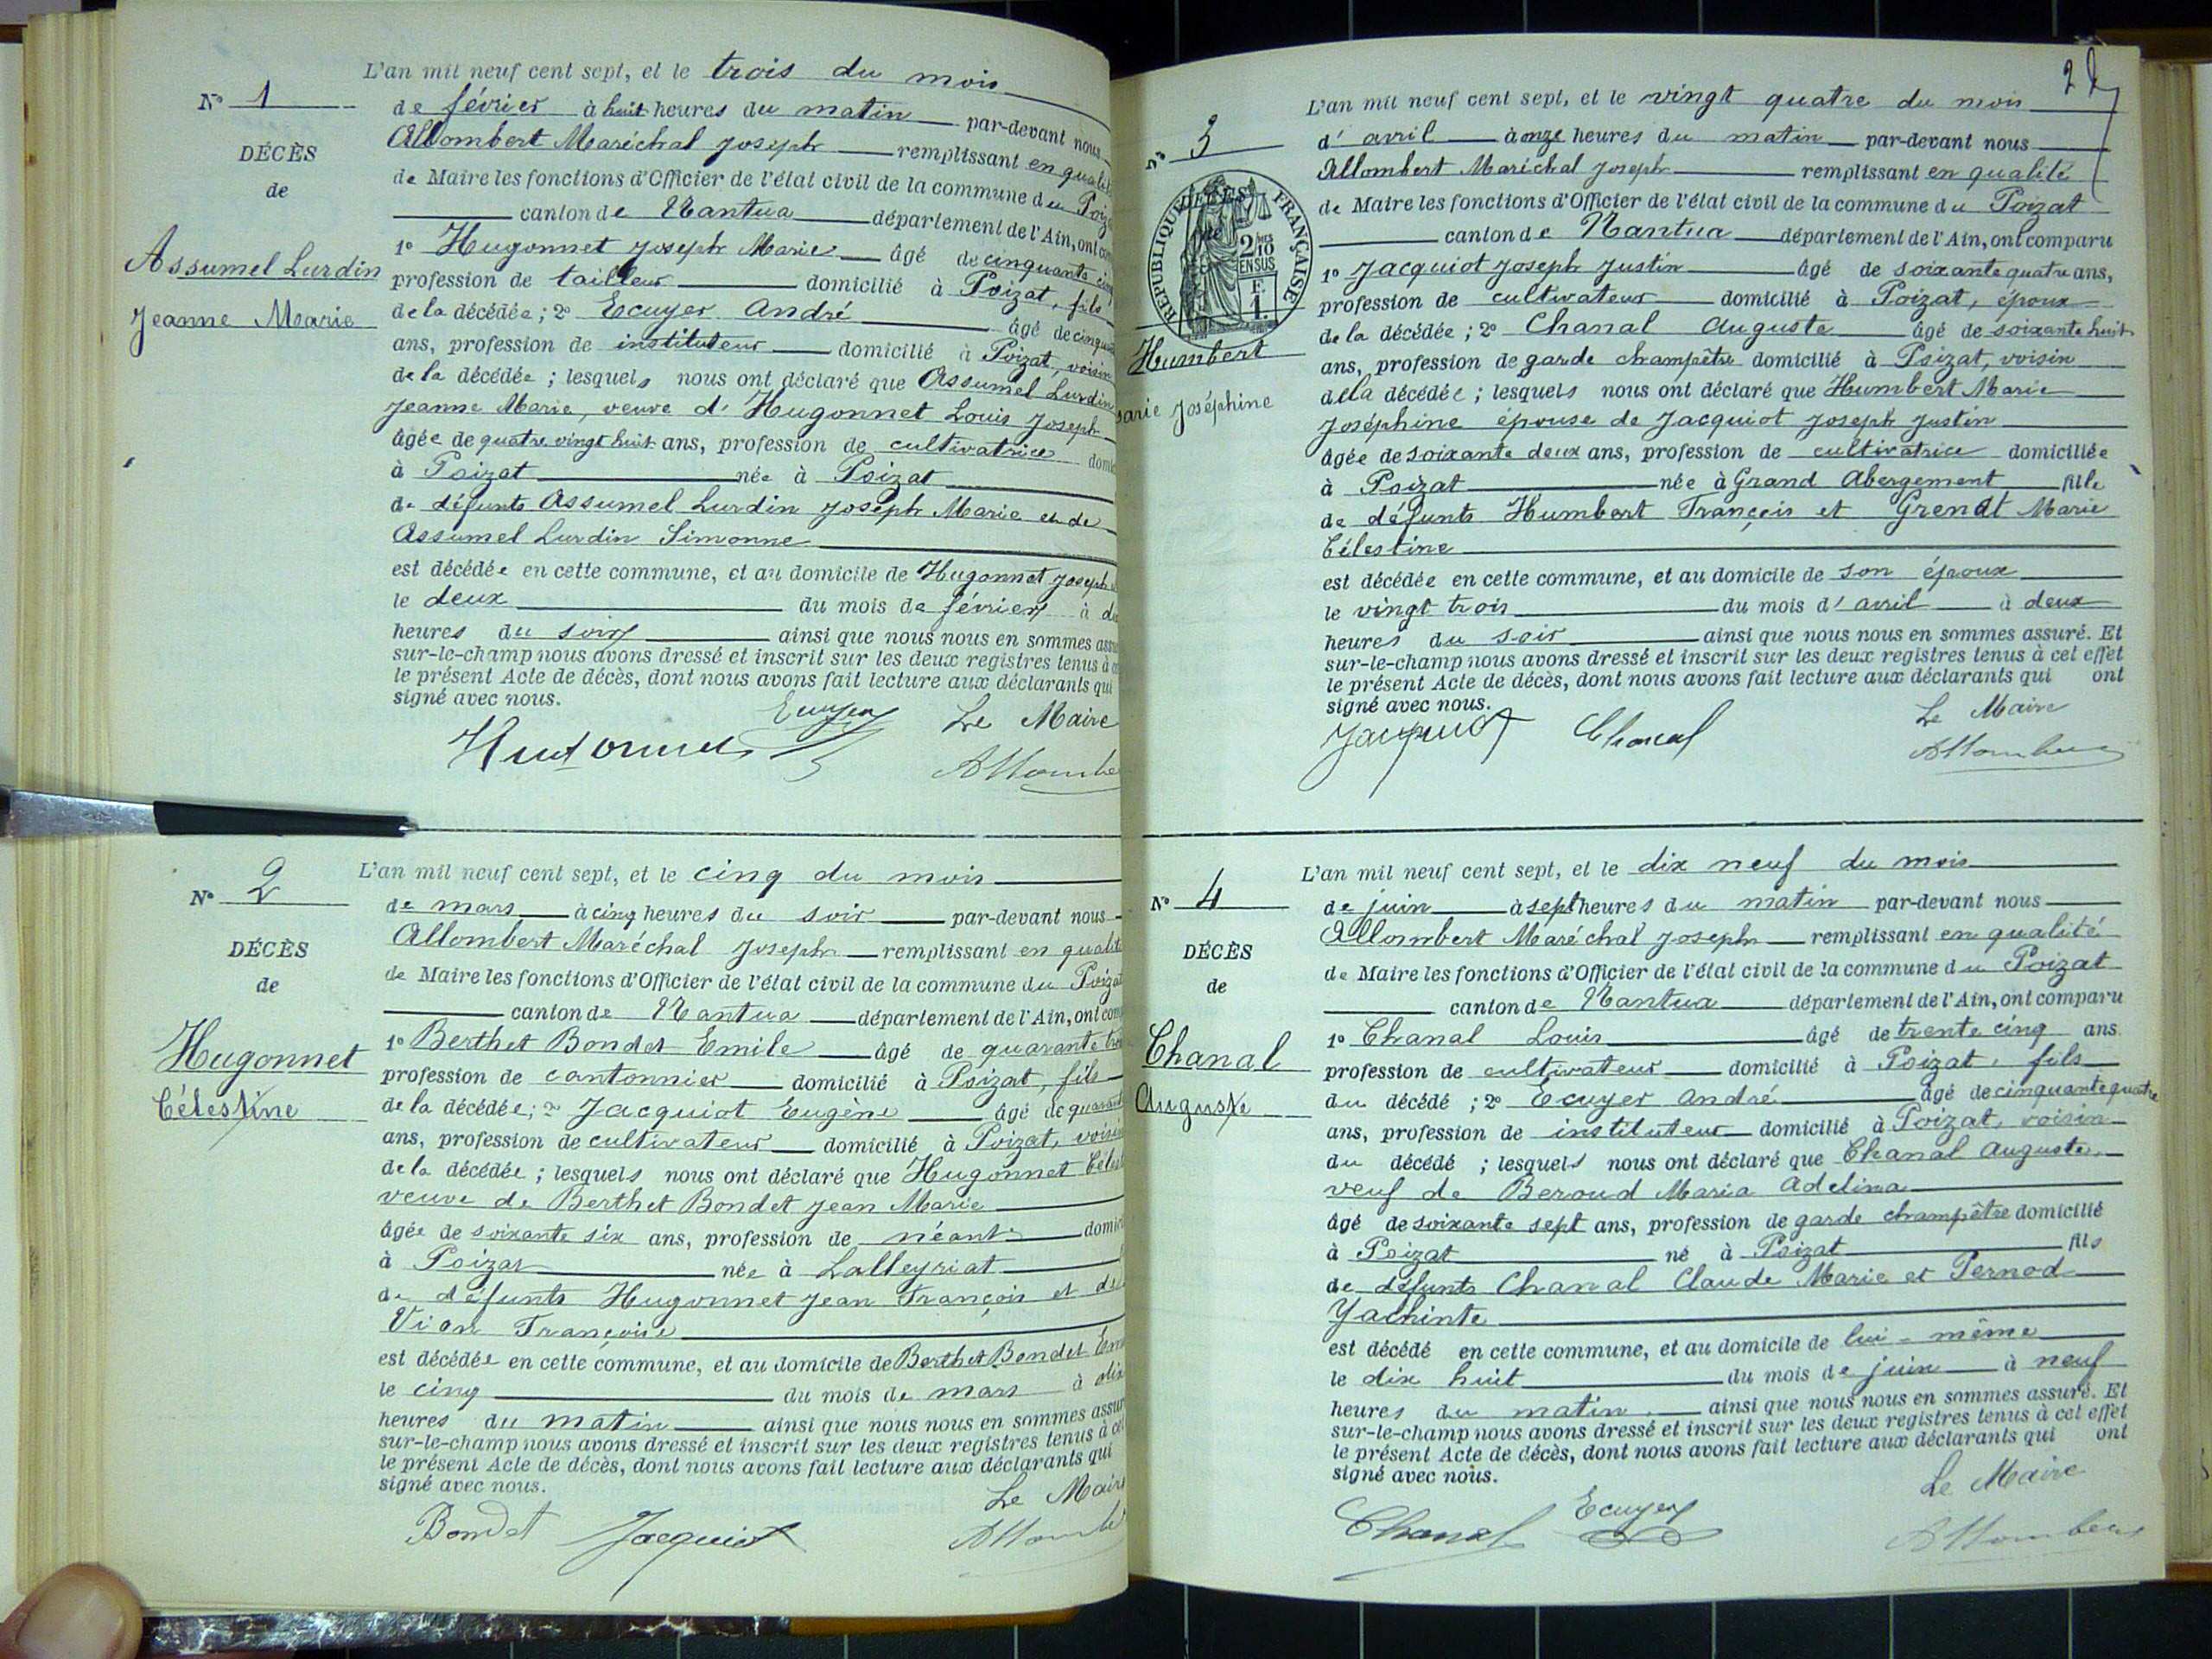 N° 1
DÉCÈS
de
Assumel Lurdin
Jeanne Marie
L'an mil neuf cent sept, et le trois du mois
de février à huit heures du matin par-devant nous
Allombert Maréchal Joseph remplissant en qualit
de Maire les fonctions d'Officier de l'état civil de la commune du Poiz
canton de Nantua département de l'Ain, ont com
1° Hugonnet Joseph Marie âgé de cinquante cinq
profession de tailleur domicilié à Poizat, fils
de la décédée ; 2° Ecuyer André âgé de cinqu
ans, profession de instituteur domicilié à Poizat, voisin
de la décédée ; lesquels nous ont déclaré que Assumel Lurdin
Jeanne Marie, veuve d'Hugonnet Louis Joseph
âgée de quatre vingt huit ans, profession de cultivatrice domi
à Poizat née à Poizat
de défunts Assumel Lurdin Joseph Marie et de
Assumel Lurdin Simonne
est décédée en cette commune, et au domicile de Hugonnet Joseph
le deux du mois de février à d
heures du soir ainsi que nous nous en sommes assu
sur-le-champ nous avons dressé et inscrit sur les deux registres tenus à c
le présent Acte de décès, dont nous avons fait lecture aux déclarants qui
signé avec nous.
Ecuyer Le Maire
Hugonnet Allombe
N° 2
DÉCÈS
de
Hugonnet
Célestine
L'an mil neuf cent sept, et le cinq du mois
de mars à cinq heures du soir par-devant nous
Allombert Maréchal Joseph remplissant en qualité
de Maire les fonctions d'Officier de l'état civil de la commune du Poizat
canton de Nantua département de l'Ain, ont com
1° Berthet Bondet Emile âgé de quarante tro
profession de cantonnier domicilié à Poizat, fils
de la décédée ; 2° Jacquiot Eugène âgé de quarant
ans, profession de cultivateur domicilié à Poizat, voisin
de la décédée ; lesquels nous ont déclaré que Hugonnet Célest
veuve de Berthet Bondet Jean Marie
âgée de soixante six ans, profession de néant domici
à Poizat née à Lalleyriat
de défunts Hugonnet Jean François et de
Vion Françoise
est décédée en cette commune, et au domicile de Berthet Bondet Em
le cinq du mois de mars à dix
heures du matin ainsi que nous nous en sommes assur
sur-le-champ nous avons dressé et inscrit sur les deux registres tenus à ce
le présent Acte de décès, dont nous avons fait lecture aux déclarants qui
signé avec nous.
Le Maire
Bondet Jacquiot Allombe
N° 3
RÉPUBLIQUE FRANÇAISE
2/10 EN SUS
F. 1.
Humbert
arie Joséphine
L'an mil neuf cent sept, et le vingt quatre du mois
d'avril à onze heures du matin par-devant nous
Allombert Maréchal Joseph remplissant en qualité
de Maire les fonctions d'Officier de l'état civil de la commune du Poizat
canton de Nantua département de l'Ain, ont comparu
1° Jacquiot Joseph Justin âgé de soixante quatre ans,
profession de cultivateur domicilié à Poizat, époux
de la décédée ; 2° Chanal Auguste âgé de soixante huit
ans, profession de garde champêtre domicilié à Poizat, voisin
de la décédée ; lesquels nous ont déclaré que Humbert Marie
Joséphine épouse de Jacquiot Joseph Justin
âgée de soixante deux ans, profession de cultivatrice domiciliée
à Poizat née à Grand Abergement fille
de défunts Humbert François et Grendt Marie
Célestine
est décédée en cette commune, et au domicile de son époux
le vingt trois du mois d'avril à deux
heures du soir ainsi que nous nous en sommes assuré. Et
sur-le-champ nous avons dressé et inscrit sur les deux registres tenus à cet effet
le présent Acte de décès, dont nous avons fait lecture aux déclarants qui ont
signé avec nous.
Le Maire
Jacquiot Chanal Allombert
N° 4
DÉCÈS
de
Chanal
Auguste
L'an mil neuf cent sept, et le dix neuf du mois
de juin à sept heures du matin par-devant nous
Allombert Maréchal Joseph remplissant en qualité
de Maire les fonctions d'Officier de l'état civil de la commune du Poizat
canton de Nantua département de l'Ain, ont comparu
1° Chanal Louis âgé de trente cinq ans
profession de cultivateur domicilié à Poizat, fils
du décédé ; 2° Ecuyer André âgé de cinquante quatre
ans, profession de instituteur domicilié à Poizat, voisin
du décédé ; lesquels nous ont déclaré que Chanal Auguste,
veuf de Beroud Maria Adelina
âgé de soixante sept ans, profession de garde champêtre domicilié
à Poizat né à Poizat fils
de défunts Chanal Claude Marie et Pernod
Yachinte
est décédé en cette commune, et au domicile de lui-même
le dix huit du mois de juin à neuf
heures du matin ainsi que nous nous en sommes assuré. Et
sur-le-champ nous avons dressé et inscrit sur les deux registres tenus à cet effet
le présent Acte de décès, dont nous avons fait lecture aux déclarants qui ont
signé avec nous.
Le Maire
Chanal Ecuyer Allombert